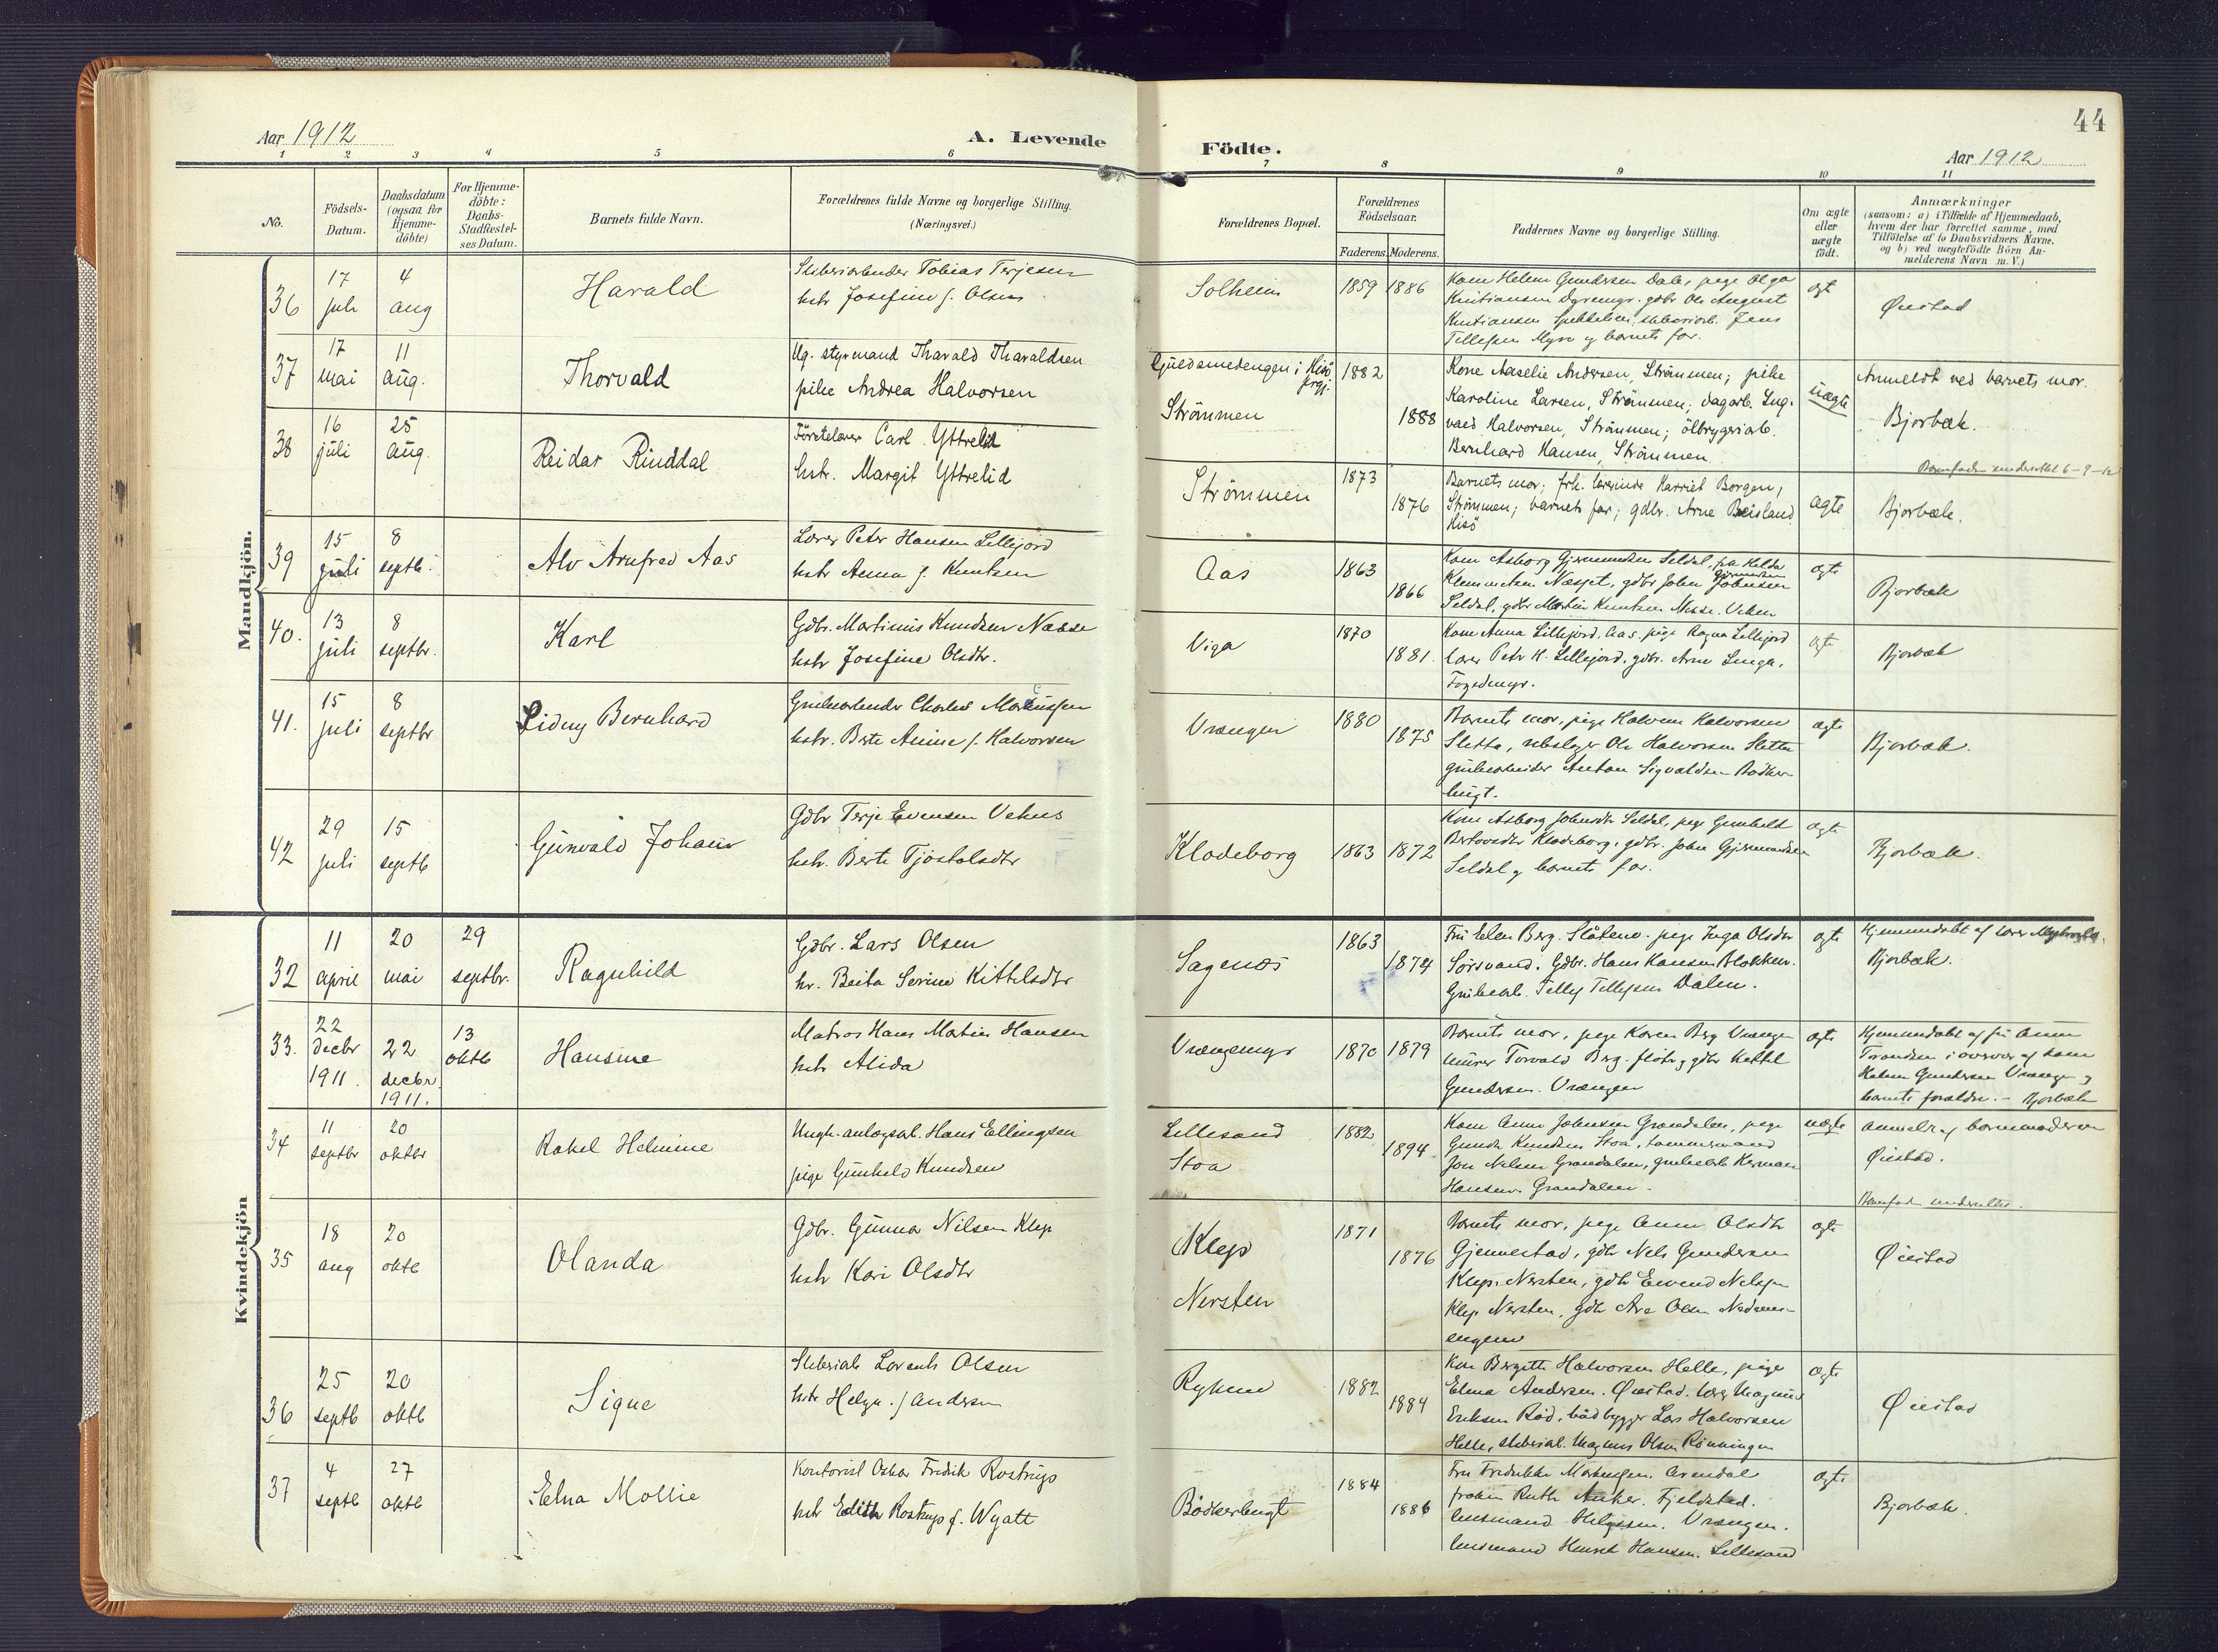 44
Aar 1912
A. Levende
Födte.
Aar 1912
1 2 3 4 5 6 7 8 9 10 11
No.
Födsels-
Datum.
Daabsdatum
(ogsaa for
Hjemme-
döbte)
For Hjemme-
döbte:
Daabs-
Stadfæstel-
ses Datum.
Barnets fulde Navn.
Forældrenes fulde Navne og borgerlige Stilling.
(Næringsvei.)
Forældrenes Bopæl.
Forældrenes
Födselsaar.
Faderens. Moderens.
Faddernes Navne og borgerlige Stilling.
Om ægte
eller
uægte
födt.
Anmærkninger
(saasom: a) i Tilfælde af Hjemmedaab,
hvem der har forrettet samme, med
Tilföielse af to Daabsvidners Navne,
og b) ved uægtefödte Börn An-
melderens Navn m. V.)
Mandkjön.
36
17
juli
4
aug
Harald
Sliberiarbeider Tobias Terjesen
hstr Josefine f. Olsen
Solheim
1859 1886
Kone Helene Gundersen Dale, pige Olga
Kristiansen Dyremyr. gdbr Ole August
Kristiansen
Tellefsen Myre og barnets far.
ægt
Øiestad
37
17
mai
11
aug.
Thorvald
Ug. styrmand Tharald Tharaldsen
pike Andrea Halvorsen
Guldsmedengen i Hisö
prgj.
Strömmen
1882
1888
Kone Aaselie Andersen, Strömmen; pike
Karoline Larsen, Strömmen; dagarb. Ing-
vald Halvorsen, Strömmen; ölbryggeriarb.
Bernhard Hansen, Strömmen
uægte
Anmeldt ved barnets mor.
Bjorbæk.
Barnefader underrettet 6-9-12
38
16
juli
25
aug.
Reidar Rinddal
Carl Yttrelid
hstr. Margit Yttrelid
Strömmen
1873
1876
Barnets mor; frk. lærerinde Harriet Borgen,
Strömmen; barnets far; gdbr. Arne Beisland
Hisö
ægte
Bjorbæk.
39
15
juli
8
septb.
Alv Arnfred Aas
Lærer Peter Hansen Lillejord
hstr Anna f. Knutsen
Aas
1863
1866
Kone Asborg Gjermundsen Seldal, frk Helda
Klemmetsen Næsset, gdbr John Gjermundsen
Seldal, gdbr Martin Knutsen Næsse. Vehus
ægte
Bjorbæk
40.
13
juli
8
septbr.
Karl
Gdbr. Martinius Knudsen Næsse
hstr Josefine Olsdtr.
Viga
1870
1881.
Kone Anna Lillejord, Aas. pige Ragna Lillejord
lærer Petr H. Lillejord, gdbr. Arne
ægte
Bjorbæk
41.
15
juli
8
septbr
Lidny Bernhard
Grubearbeider Charles Markussen
hstr. Berte Anine f. Halvorsen
Vrængen
1880
1875
Barnets mor, pige Halvine Halvorsen
Sletta, rebslager Ole Halvorsen Sletta
grubearbeider Anton Sigvaldsen Bödker-
bugt.
ægte
Bjorbæk.
42
29
juli
15
septb
Gunvald Johan
Gdbr Terje Evensen Vehus
hstr. Berte Tjöstolsdtr
Klodeborg
1863 1872
Kone Asborg Johnsdtr Seldal, pige Gunhild
Klodeborg, gdbr. John Gjermundsen
Seldal og barnets far.
ægte
Bjorbæk.
Kvindekjön
32
11
april
20
mai
29
septbr.
Ragnhild
Gdbr. Lars Olsen
hr. Berta Serine Kittelsdtr
Sagenæs
1863
1874
Fru Elen Berg. Slåtene. pige Inga Olsdtr
Sörsvand. Gdbr. Hans Hansen Blokken.
Grubearb. Tellef Tellefsen Dalen.
ægte
Hjemmedöbt af lærer
Bjorbæk.
33.
22
decbr
1911.
22
decbr.
1911.
13
oktb
Hansine
Matros Hans Martin Hansen
hstr Alida
Vrængmyr
1870 1879
Barnets mor, pige Karen Berg Vrænge
murer Torvald Berg. og gdbr Kittel
Gundersen. Vrængen
ægte
Hjemmedöbt af fru Anna
Torandsen i overvær af kone
Helene Gundersen Vrænge og
barnets forældre. - Bjorbæk
34
11
septbr
20
oktbr
Rakel Helmine
Ungk. anlægsarb. Hans Ellingsen
pige Gunhild Knudsen
Lillesand
Stoa
1882
1894
Kone Anne Johnsen Grandalen, pige
Gunda Knudsen Stoa, tømmermand
Jon Nilsen Grandalen, grubearb Herman
Hansen Grandalen.
uægte
Anmeldt af barnemoderen
Øiestad.
Barnefader underrettet.
35
18
aug
20
oktb
Olanda
Gdbr. Gunnar Nilsen Klep
hstr Kari Olsdtr
Klep
Nersten
1871
1876
Barnets mor, pige Anne Olsdtr
Gjennestad, gdbr Nels Gundersen
Klep Nersten, gdbr Eivind Nelsen
Klep Nersten, gdbr Are Olsen Nedenes-
engene
ægte
Øiestad
36
25
septb
20
oktb
Signe
Sliberiarb Lorents Olsen
hstr Helga f Andersen
Rykene
1882
1884
Kone Bergitte Halvorsen Helle, pige
Elma Andersen. Øiestad. lærer Magnus
Eriksen Röd, bådbygger Lars Halvorsen
Helle, sliberiarb. Magnus Olsen Rönningen
ægte
Øiestad
37
4
septb
27
oktb
Elna Mollie
Kontorist Oskar Fredrik Rostrup
hstr Edith Rostrup f. Wyatt
Bödkerbugt
1884
1886
Fru Fredrikke Mortensen. Arendal
fröken Ruth Anker. Fjeldstad.
lensmand Helgesen. Vrængen.
lensmand Henrik Hansen. Lillesand
ægte
Bjorbæk.